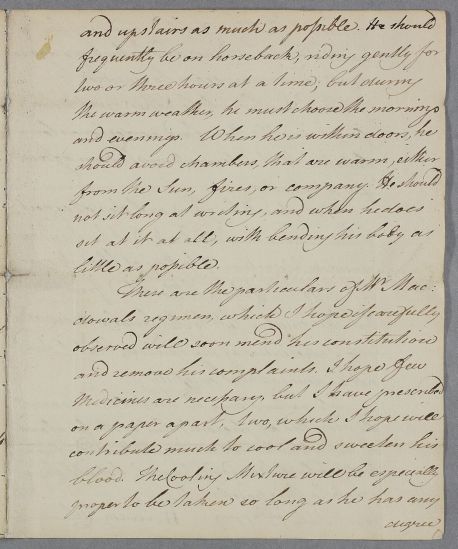 and upstairs as much as possible. He should
frequently be on horseback, riding gently for
two or three hours at a time; but during
the warm weather, he must choose the mornings
and evenings. When he is within doors, he
should avoid chambers, that are warm, either
from the Sun, fires, or company. He should
not sit long at writing, and when he does
sit at it at all, with bending his body as
little as possible.
These are the particulars of Mr. Mac:
dowals regimen, which I hope if carefully
observed will soon mend his constitution
and remove his complaints. I hope few
Medicines are necessary, but I have prescribed
on a paper apart, two, which I hope will
contribute much to cool and sweeten his
blood. The Cooling Mixture will be especially
proper to be taken so long as he has any
degree